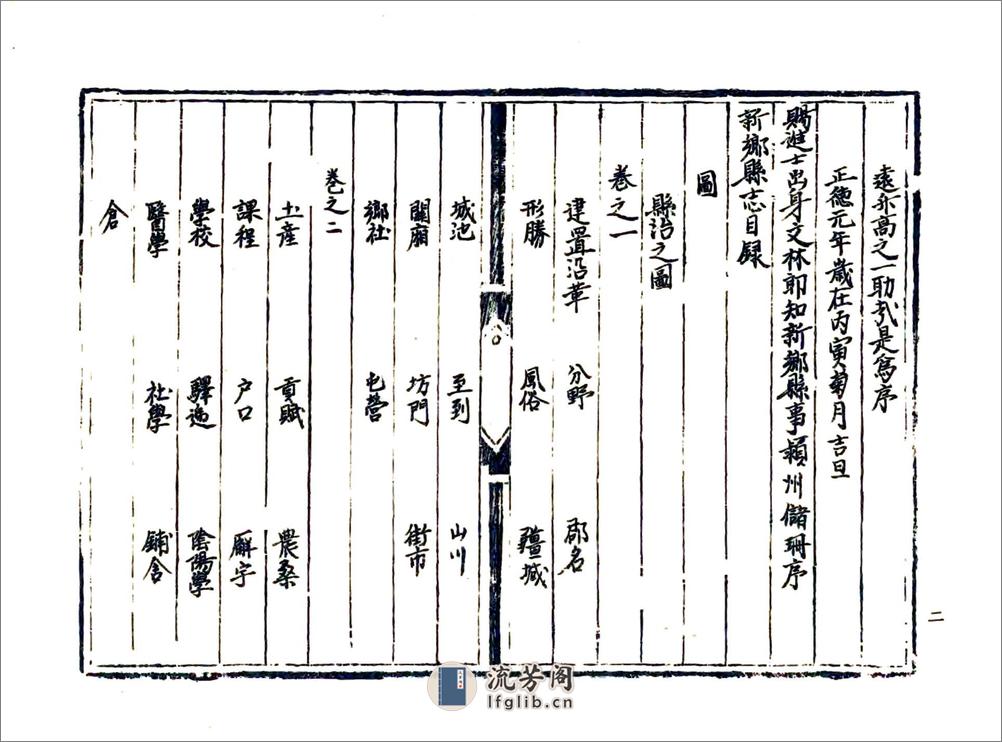 遠升高之一助哉是爲序
正德元年歲在丙寅菊月吉旦
賜進士出身文林郎知新鄉縣事潁州儲珊序
新鄉縣志目錄
圖
縣治之圖
卷之一
建置沿革 分野 郡名
形勝 風俗 疆域
城池 至到 山川
關廂 坊門 街市
鄉社 屯營
卷之二
土產 貢賦 農桑
課程 户口 廨宇
學校 驛逓 陰陽學
醫學 社學 鋪舍
倉
二
流芳阁
lfglib.cn